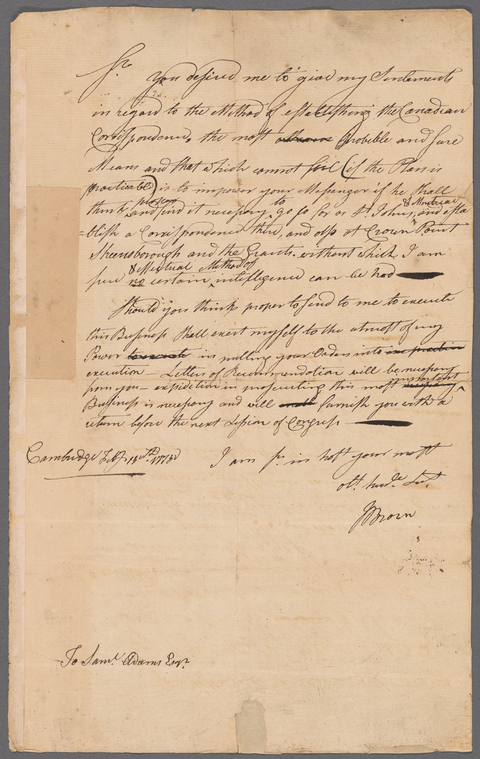 Sr.
You desired me to give my Sentements
in regard to the Method of establishing the Canadian
Correspondence, the most probible and sure
Means and that which cannot fail (if the Plan is
practicable) is to impower your Messenger if he shall
think proper and find it necessary to go so far as St. Johns, and esta
=blish a Correspondence there, and also at Crown Point
Skeensborough and the Grants, without which, I am
& Mutual Method of
sure no certain intelligence can be had
Should you think proper to send to me to execute
this Business shall exert myself to the utmost of my
Power in putting your Orders into
execution – Letters of Recommendation will be necessary
from you – expedition in prosecuting this most
Business is necessary and will furnish you with a
return before the next Session of Congress
Cambridge Feby. 1775
I am Sr. in hast your most
obt. humle. Sert.
J Brown
To Saml. Adams Esqr.